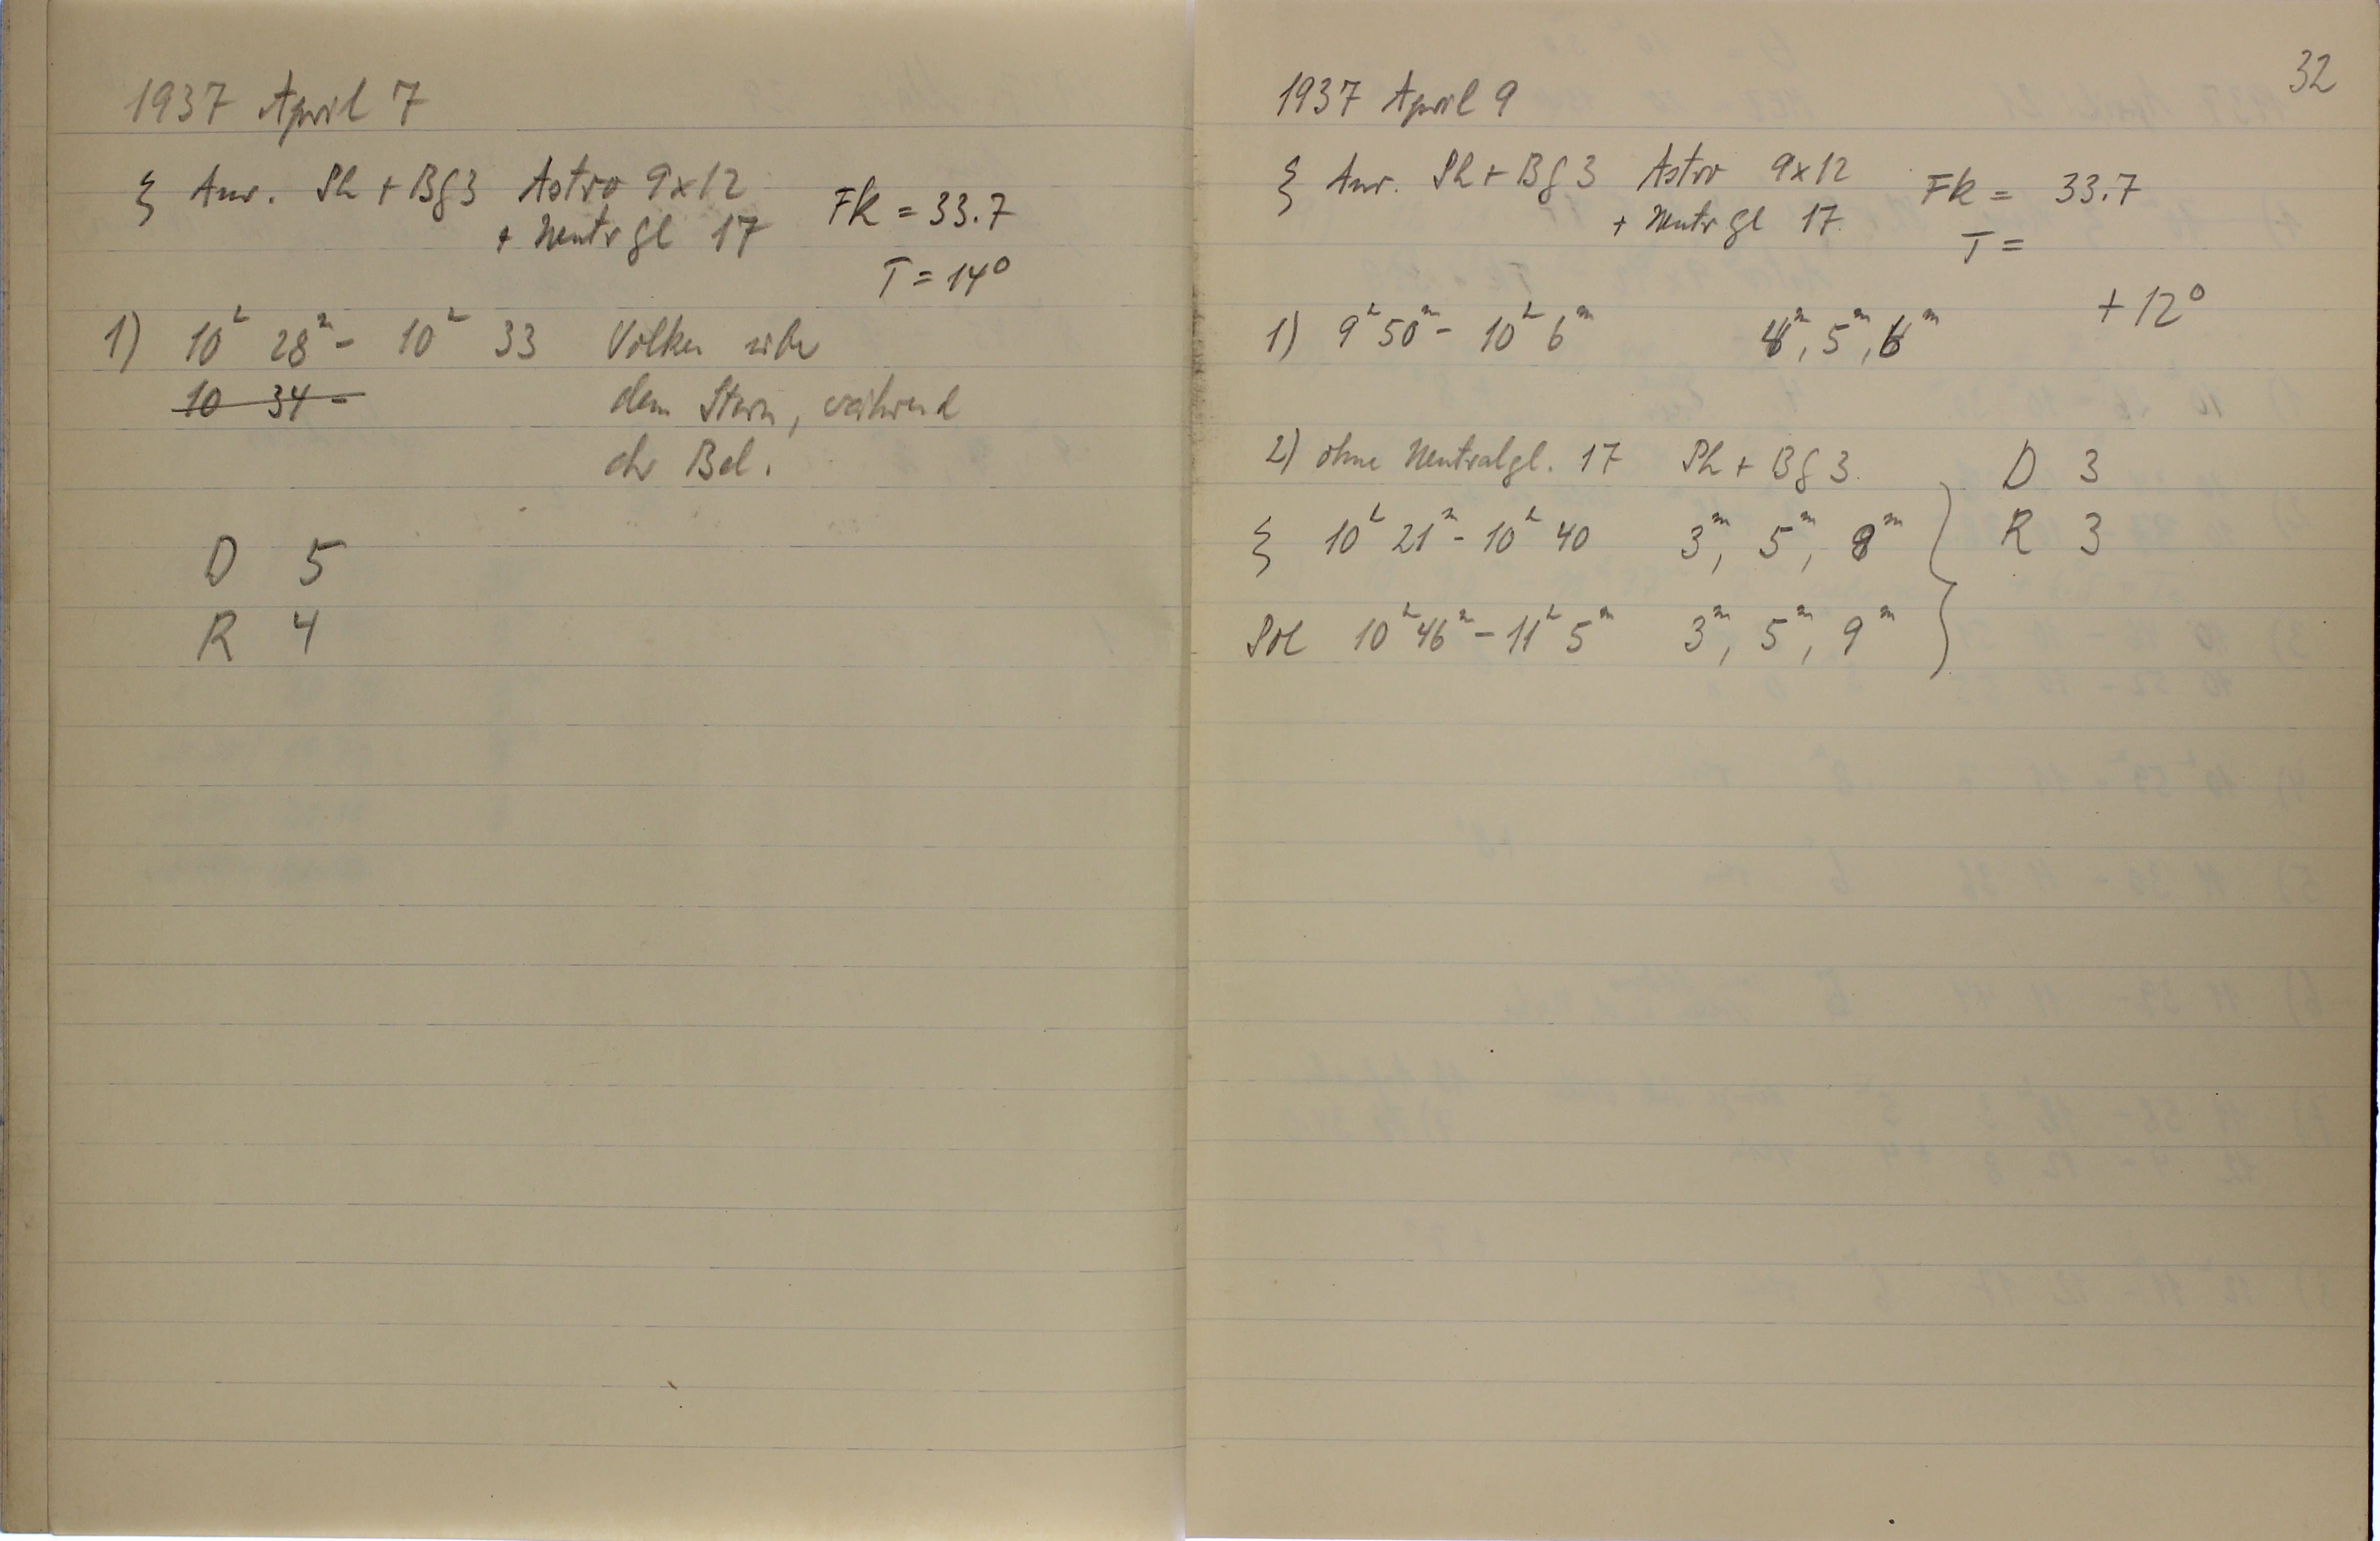 1937 April 7
ξ Aur. Ph + Bg 3 Astro 9x12
+ Neutrgl 17
Fk = 33.7
T = 14°
1) 10ʰ 28ᵐ - 10ʰ 33 Wolken
10 34 -
dem Stern, während
der Bel.
D 5
R 4
32
1937 April 9
ξ Aur. Ph + Bg 3 Astro 9x12
+ Neutrgl 17
Fk = 33.7
T =
+ 12°
1) 9ʰ 50ᵐ - 10ʰ 6ᵐ 4ᵐ, 5ᵐ, 6ᵐ
2) ohne Neutralgl. 17 Ph + Bg 3 D 3
ξ 10ʰ 21ᵐ - 10ʰ 40 3ᵐ, 5ᵐ, 8ᵐ R 3
Pol 10ʰ 46ᵐ - 11ʰ 5ᵐ 3ᵐ, 5ᵐ, 9ᵐ